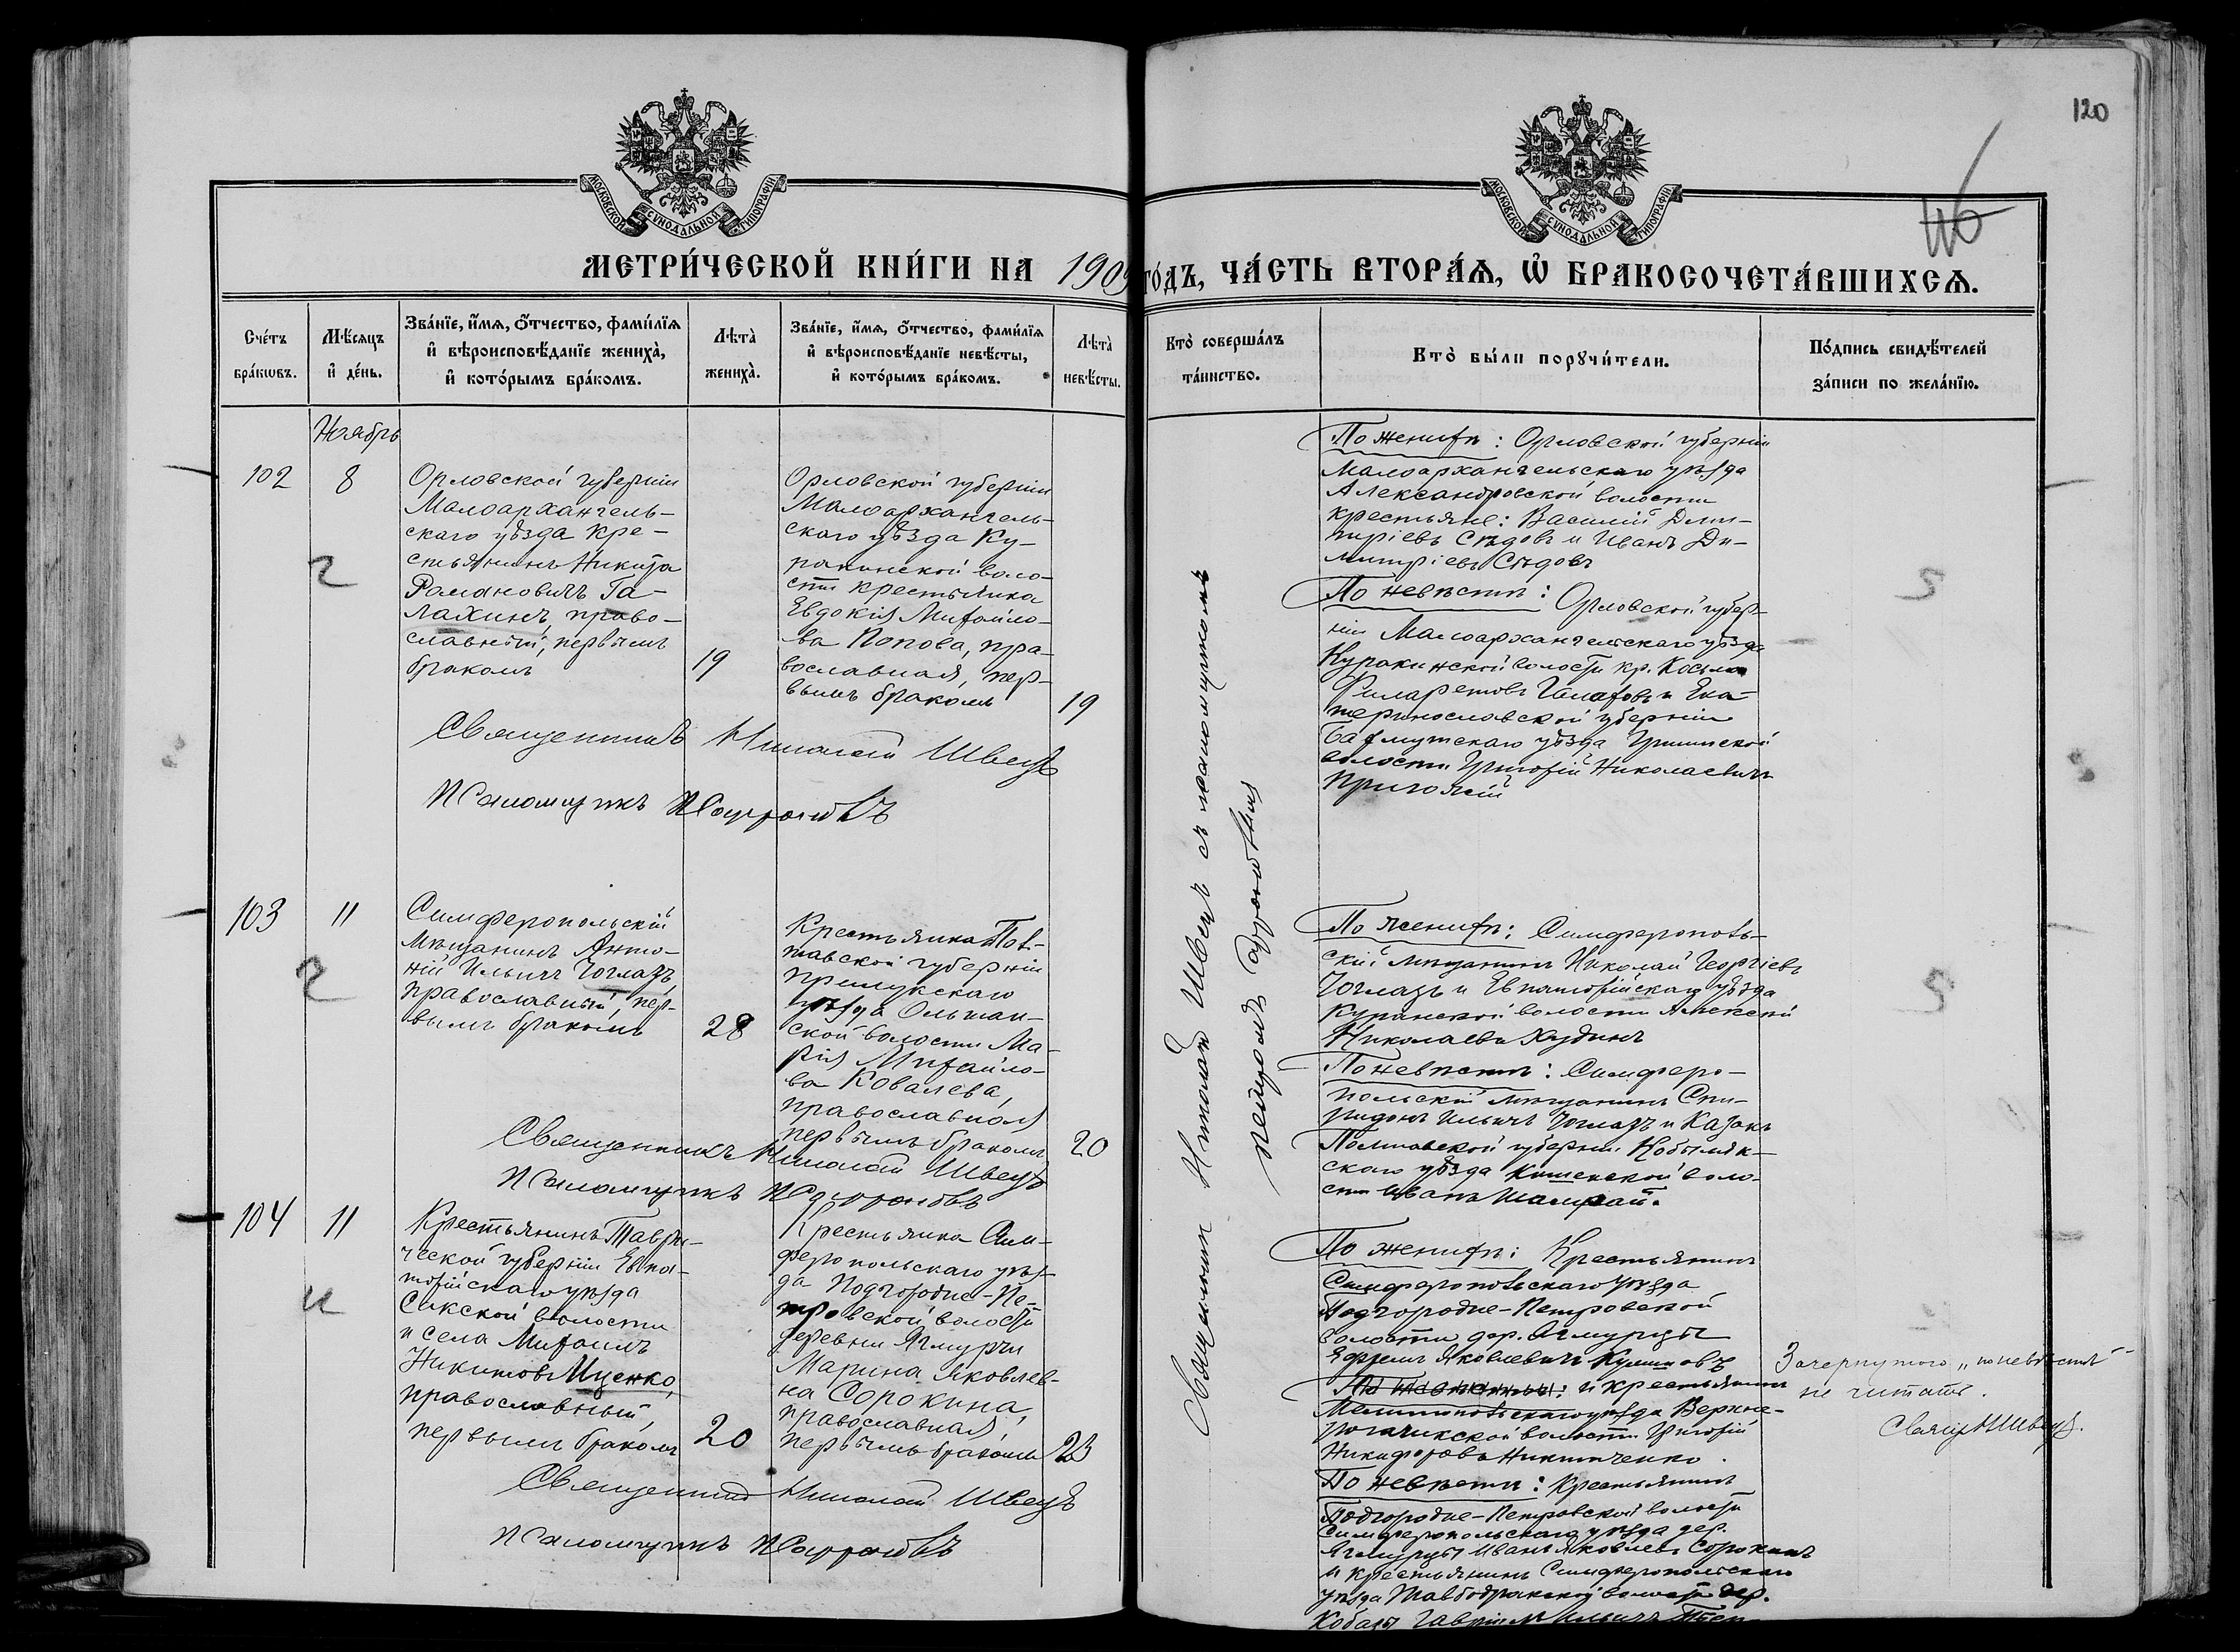 120
116
МОСКОВСКОЙ СѴНОДАЛЬНОЙ ТИПОГРАФІИ
МОСКОВСКОЙ СѴНОДАЛЬНОЙ ТИПОГРАФІИ
МЕТРИ́ЧЕСКОЙ КНИ́ГИ НА 1909 ГО́ДЪ, ЧА́СТЬ ВТОРА́Ѧ, Ѡ҆ БРАКОСОЧЕТА́ВШИХСѦ.
Сче́тъ
бра́кѡвъ.
Мѣ́сѧцъ
и҆ де́нь.
Зва́нїе, и҆́мѧ, ѻ҆́тчество, фами́лїѧ
и҆ вѣроисповѣ́данїе жениха̀,
и҆ кото́рымъ бра́комъ.
Лѣта̀
жениха̀.
Зва́нїе, и҆́мѧ, ѻ҆́тчество, фами́лїѧ
и҆ вѣроисповѣ́данїе невѣ́сты,
и҆ кото́рымъ бра́комъ.
Лѣта̀
невѣ́сты.
Кто̀ соверша́лъ
та́инство.
Кто̀ бы́ли порꙋчи́тели.
По́дпись свидѣ́телей
за́писи по жела́нїю.
Ноябрь
102
8
2
Орловской губерніи
Малоархангель-
скаго уѣзда кре-
стьянинъ Никита
Романовичъ Га-
лахинъ, право-
славный, первымъ
бракомъ
19
Орловской губерніи
Малоархангель-
скаго уѣзда Ку-
ракинской воло-
сти крестьянка
Евдокія Михайло-
ва Попова, пра-
вославная, пер-
вымъ бракомъ
19
Священникъ Николай Швецъ
Псаломщикъ
По женихѣ: Орловской губерніи
Малоархангельскаго уѣзда
Александровской волости
крестьяне: Василій Дми-
тріевъ Сѣдовъ и Иванъ Ди-
митріевъ Сѣдовъ
По невѣстѣ: Орловской губер-
ніи Малоархангельскаго уѣзда
Куракинской волости кр. Косьма
Филаретовъ и Ека-
теринославской губерніи
Бахмутскаго уѣзда Гришинской
волости Григорій Николаевичъ
5
Священникъ Николай Швецъ съ псаломщикомъ
103
11
2
Симферопольскій
мѣщанинъ Анто-
ній Ильичъ Чоглазъ,
православный, пер-
вымъ бракомъ
28
Крестьянка Пол-
тавской губерніи
Прилукскаго
уѣзда Ольшан-
ской волости Ма-
рія Михайло-
ва Ковалева,
православная
первымъ бракомъ
20
Священникъ Николай Швецъ
Псаломщикъ
По женихѣ: Симферополь-
скій мѣщанинъ Николай Георгіевъ
Чоглазъ и Евпаторійскаго уѣзда
волости Алексѣй
Николаевъ Худинъ
По невѣстѣ: Симферо-
польскій мѣщанинъ Спи-
ридонъ Ильичъ Чоглазъ и казакъ
Полтавской губерніи Кобыляк-
скаго уѣзда Кишенской воло-
сти Иванъ
5
104
11
и
Крестьянинъ Таври-
ческой губерніи Евпа-
торійскаго уѣзда
Сакской волости
и села Михаилъ
Никитовъ Ищенко,
православный,
первымъ бракомъ
20
Крестьянка Сим-
феропольскаго уѣз-
да Подгородне-Пе-
тровской волости
деревни Ягмурчи
Марина Яковлев-
на Сорокина,
православная
первымъ бракомъ
23
Священникъ Николай Швецъ
Псаломщикъ
По женихѣ: Крестьянинъ
Симферопольскаго уѣзда
Подгородне-Петровской
волости дер. Ягмурцы
Ефремъ Яковлевичъ Куликовъ
и крестьянинъ
Мелитопольскаго уѣзда Верхне-
Рогачикской волости Григорій
Никифоровъ Никитченко.
По невѣстѣ: крестьянинъ
Подгородне-Петровской волости
Симферопольскаго уѣзда дер.
Ягмурцы Иванъ Яковлевъ Сорокинъ
и крестьянинъ Симферопольскаго
уѣзда волости дер.
Кобазы Гавріилъ Ильичъ
Зачеркнутого „по невѣстѣ"
не читать.
Свящ. Н. Швецъ.